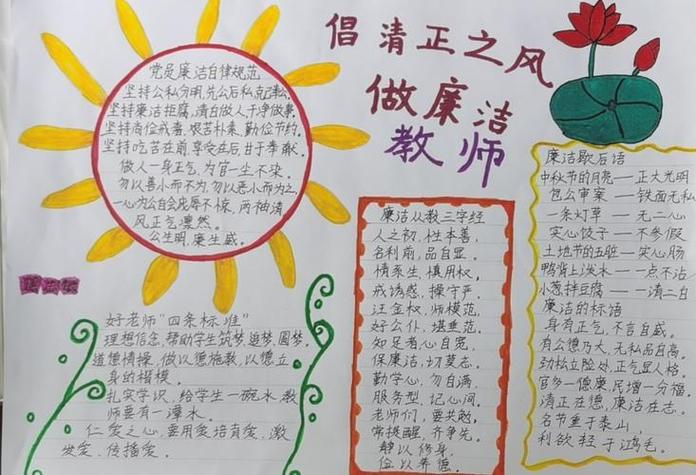 倡清正之风
做廉洁
教师
党员廉洁自律规范
坚持公私分明,先公后私,克己奉公。
坚持廉洁拒腐,清白做人干净做事。
坚持尚俭戒奢,艰苦朴素,勤俭节约。
坚持吃苦在前,享受在后,甘于奉献。
做人一身正气,为官一尘不染。
勿以善小而不为,勿以恶小而为之
一心为公自会宠辱不惊,两袖清
风正气凛然。
公生明,廉生威。
好老师"四条标准"
理想信念,帮助学生筑梦,追梦,圆梦。
道德情操,做以德施教,以德立
身的楷模。
扎实学识,给学生一碗水,教
师要有一潭水。
仁爱之心,要用爱培育爱,激
发爱,传播爱。
廉洁从教三字经
人之初,性本善,
名利前,品自显。
情系生,慎用权,
戒诱惑,操守严。
汪金权,师模范,
好公仆,堪垂范。
知足者心自宽,
保廉洁,切莫贪。
勤学心,勿自满,
服务型,记心间。
老师们,要共勉,
常提醒,齐争先。
静以修身,
俭以养德。
廉洁歇后语
中秋节的月亮——正大光明
包公审案——铁面无私
一条灯草——无二心
实心饺子——不参假
土地爷的五脏——实心肠
鸭背上泼水——一点不沾
小葱拌豆腐——一清二白
廉洁的标语
身有正气,不言自威。
有公德乃大,无私品自高。
劲松立险处,正气显人格。
官多一份廉,民增一分福。
清正在德,廉洁在志。
名节重于泰山,
利欲轻于鸿毛。